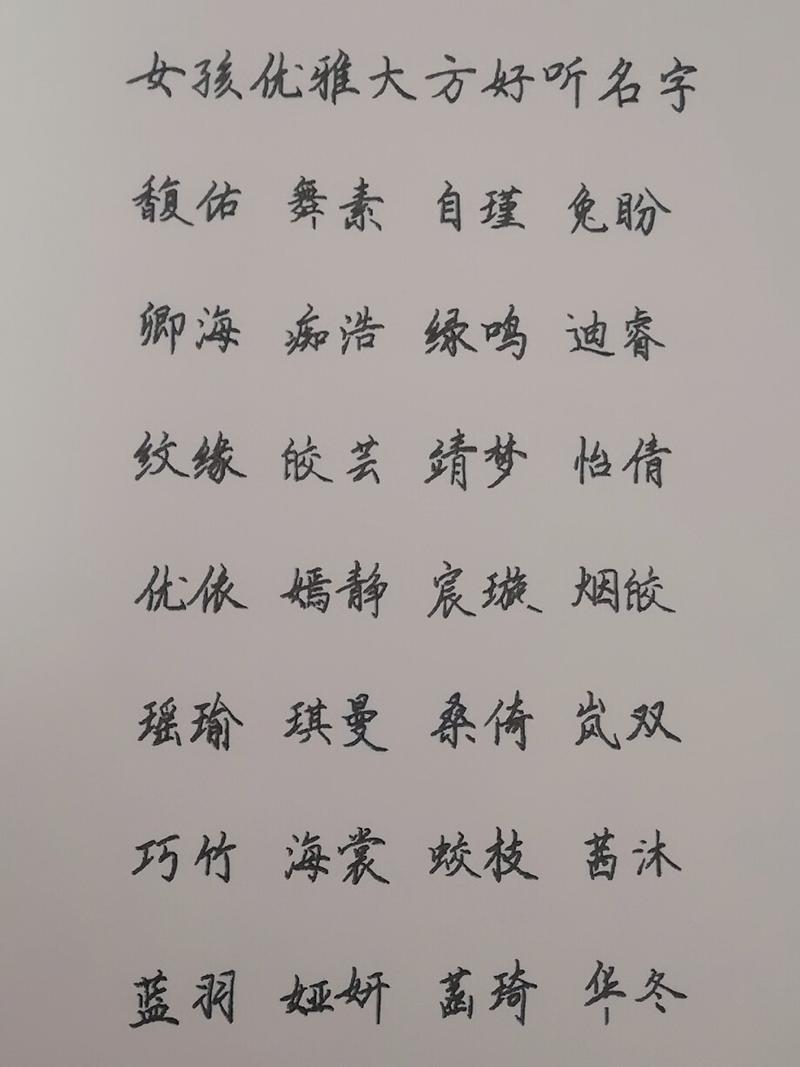 女孩优雅大方好听名字
馥佑 舞素 自瑾 兔盼
卿海 痴浩 绿鸣 迪睿
纹缘 皎芸 靖梦 怡倩
优依 嫣静 宸璇 烟皎
瑶瑜 琪曼 桑倚 岚双
巧竹 海裳 蛟枝 茜沐
蓝羽 娅妍 菡琦 华冬